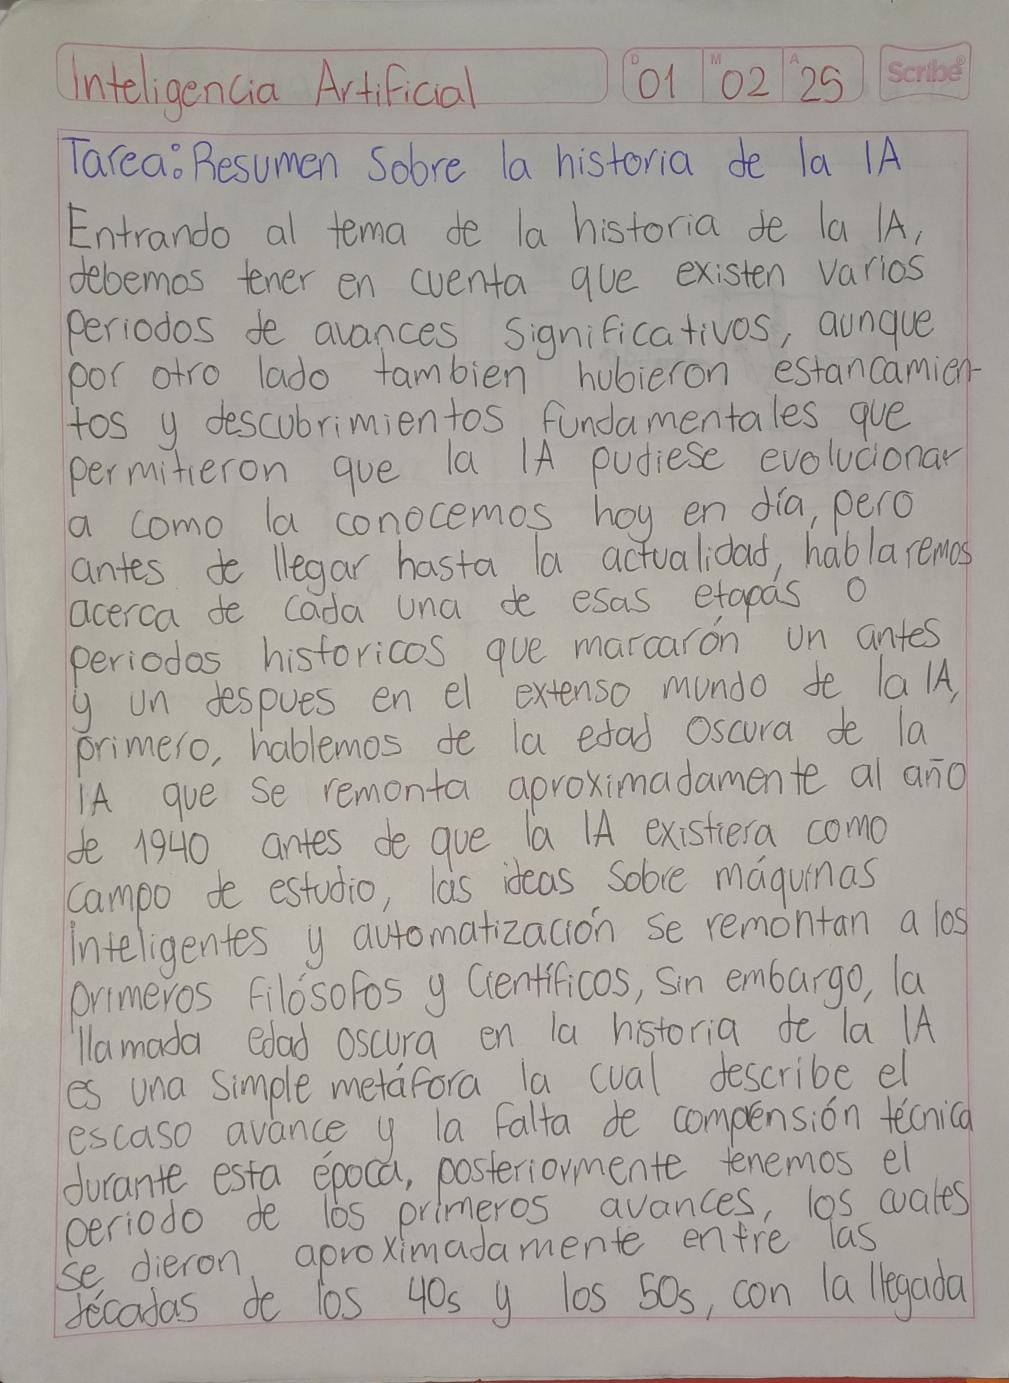 Inteligencia Artificial D 01 M 02 A 25 Scribe®
Tarea: Resumen Sobre la historia de la IA
Entrando al tema de la historia de la IA,
debemos tener en cuenta que existen varios
periodos de avances significativos, aunque
por otro lado tambien hubieron estancamien-
tos y descubrimientos fundamentales que
permitieron que la IA pudiese evolucionar
a como la conocemos hoy en día, pero
antes de llegar hasta la actualidad, hablaremos
acerca de cada una de esas etapas o
periodos historicos que marcarón un antes
y un despues en el extenso mundo de la IA,
primero, hablemos de la edad oscura de la
IA que se remonta aproximadamente al año
de 1940 antes de que la IA existiera como
campo de estudio, las ideas sobre máquinas
inteligentes y automatización se remontan a los
primeros filósofos y científicos, sin embargo, la
llamada edad oscura en la historia de la IA
es una simple metáfora la cual describe el
escaso avance y la falta de compensión técnica
durante esta época, posteriormente tenemos el
periodo de los primeros avances, los cuales
se dieron aproximadamente entre las
décadas de los 40s y los 50s, con la llegada